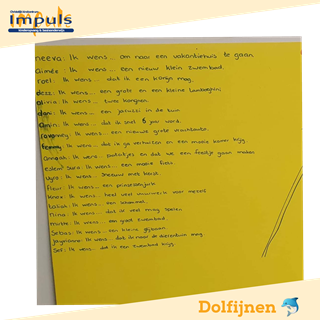 impuls
kinderopvang & basisonderwijs
neeva: Ik wens... om naar een vakantiehuis te gaan.
Aimée: Ik wens... een nieuw klein zwembad.
Ik wens... dat ik een konijn mag.
Ik wens... een grote en een kleine Lamborghini
Olivia: Ik wens... twee konijnen.
Ik wens... een jacuzzi in de tuin.
Ik wens... dat ik snel 5 jaar word.
Ik wens... een nieuwe grote vrachtauto.
Ik wens... dat ik ga verhuizen en een mooie kamer krijg
Ik wens... en dat we een feestje gaan maken
Ik wens... een mooie fiets
Ik wens... sneeuw met kerst.
Fleur: Ik wens... een prinsessenjurk.
Ik wens... heel veel vuurwerk voor mezelf
Ik wens... een
Nina: Ik wens... dat ik veel mag spelen
Ik wens... een groot zwembad.
Sebas: Ik wens... een kleine
Jaymianne: Ik wens... dat ik naar de dierentuin mag.
Sef: Ik wens... dat ik een zwembad krijg.
Dolfijnen